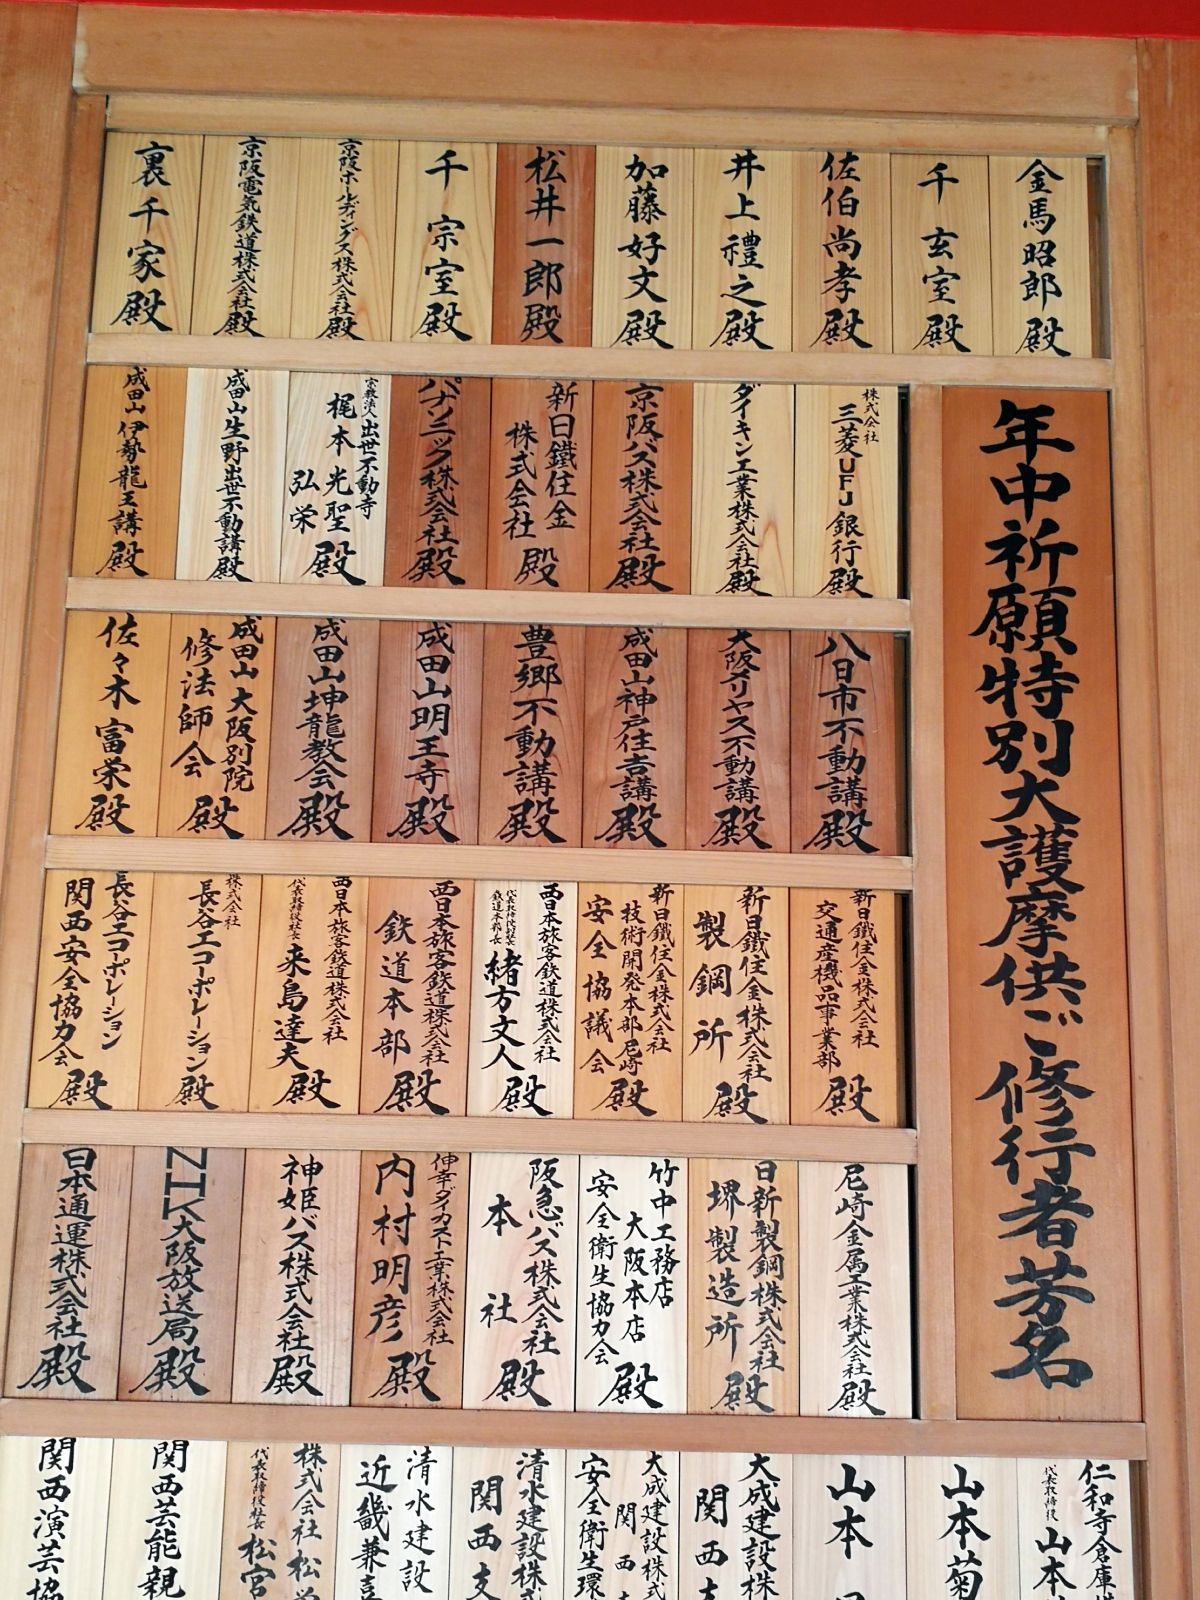 年中祈願特別大護摩供ご修行者芳名
金馬昭郎殿
千玄室殿
佐伯尚孝殿
井上禮之殿
加藤好文殿
松井一郎殿
千宗室殿
京阪ホールディングス株式会社殿
京阪電気鉄道株式会社殿
裏千家殿
株式会社
三菱UFJ銀行殿
ダイキン工業株式会社殿
京阪バス株式会社殿
新日鐵住金
株式会社殿
パナソニック株式会社殿
宗教法人出世不動寺
梶本光聖
弘栄殿
成田山生野出世不動講殿
成田山伊勢龍王講殿
八日市不動講殿
大阪メリヤス不動講殿
成田山神戸住吉講殿
豊郷不動講殿
成田山明王寺殿
成田山坤龍教会殿
成田山大阪別院
修法師会殿
佐々木富栄殿
新日鐵住金株式会社
交通産機品事業部殿
新日鐵住金株式会社
製鋼所殿
新日鐵住金株式会社
技術開発本部尼崎
安全協議会殿
西日本旅客鉄道株式会社
鉄道本部長
緒方文人殿
西日本旅客鉄道株式会社
鉄道本部殿
西日本旅客鉄道株式会社
代表取締役社長
来島達夫殿
株式会社
長谷工コーポレーション殿
長谷工コーポレーション
関西安全協力会殿
尼崎金属工業株式会社殿
日新製鋼株式会社
堺製造所殿
竹中工務店
大阪本店
安全衛生協力会殿
阪急バス株式会社
本社殿
伸幸ダイカスト工業株式会社
内村明彦殿
神姫バス株式会社殿
NHK大阪放送局殿
日本通運株式会社殿
仁和寺倉庫
代表取締役
山本
山本菊
山本
大成建設株
関西支
大成建設株式
関西
安全衛生環
清水建設株式
関西支
清水建設
近畿兼喜
株式会社松
代表取締役社長
松宮
関西芸能親
関西演芸協